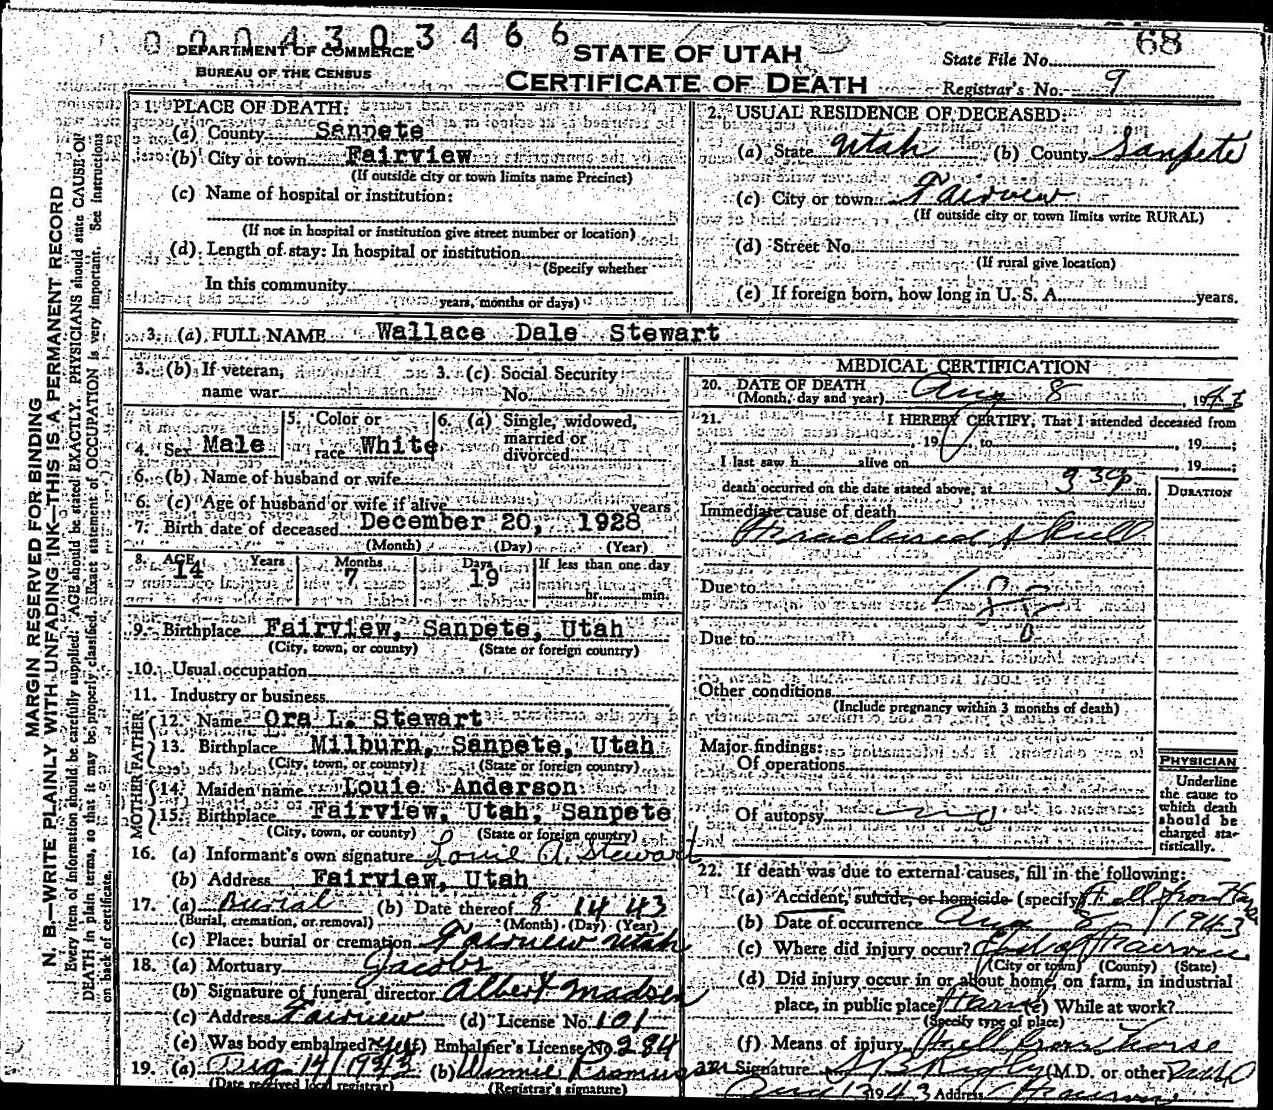 0004303466
DEPARTMENT OF COMMERCE
BUREAU OF THE CENSUS
STATE OF UTAH
CERTIFICATE OF DEATH
68
State File No.
Registrar's No. 9
MARGIN RESERVED FOR BINDING
N. B.—WRITE PLAINLY WITH UNFADING INK—THIS IS A PERMANENT RECORD
Every item of information should be carefully supplied. AGE should be stated EXACTLY. PHYSICIANS should state CAUSE OF
DEATH in plain terms, so that it may be properly classified. Exact statement of OCCUPATION is very important. See instructions
on back of certificate.
1. PLACE OF DEATH:
(a) County Sanpete
(b) City or town Fairview
(If outside city or town limits name Precinct)
(c) Name of hospital or institution:
(If not in hospital or institution give street number or location)
(d) Length of stay: In hospital or institution
(Specify whether
In this community
years, months or days)
2. USUAL RESIDENCE OF DECEASED:
(a) State Utah (b) County Sanpete
(c) City or town Fairview
(If outside city or town limits write RURAL)
(d) Street No.
(If rural give location)
(e) If foreign born, how long in U. S. A. years.
3. (a) FULL NAME Wallace Dale Stewart
3. (b) If veteran,
name war
3. (c) Social Security
No.
4. Sex Male
5. Color or
race White
6. (a) Single, widowed,
married or
divorced
6. (b) Name of husband or wife
6. (c) Age of husband or wife if alive years
7. Birth date of deceased December 20, 1928
(Month) (Day) (Year)
8. AGE Years Months Days If less than one day
14 7 19
hr. min.
9. Birthplace Fairview, Sanpete, Utah
(City, town, or county) (State or foreign country)
10. Usual occupation
11. Industry or business
FATHER
12. Name Ora L. Stewart
13. Birthplace Milburn, Sanpete, Utah
(City, town, or county) (State or foreign country)
MOTHER
14. Maiden name Louie Anderson
15. Birthplace Fairview, Utah, Sanpete
(City, town, or county) (State or foreign country)
16. (a) Informant's own signature Louie A. Stewart
(b) Address Fairview, Utah
17. (a) Burial (b) Date thereof 8 14 43
(Burial, cremation, or removal) (Month) (Day) (Year)
(c) Place: burial or cremation Fairview Utah
18. (a) Mortuary Jacobs
(b) Signature of funeral director Albert Madsen
(c) Address Fairview (d) License No. 101
(e) Was body embalmed yes (f) Embalmer's License No. 284
19. (a) 14/1943 (b) Winnie Rasmussen
(Date received local registrar) (Registrar's signature)
MEDICAL CERTIFICATION
20. DATE OF DEATH
(Month, day and year) Aug 8, 1943
21. I HEREBY CERTIFY, That I attended deceased from
, 19 , to , 19 ;
I last saw h alive on , 19 ;
death occurred on the date stated above, at 3 30 p m.
DURATION
Immediate cause of death
Fractured Skull
Due to
Due to
Other conditions
(Include pregnancy within 3 months of death)
Major findings:
Of operations
Of autopsy no
PHYSICIAN
Underline
the cause to
which death
should be
charged sta-
tistically.
22. If death was due to external causes, fill in the following:
(a) Accident, suicide, or homicide (specify) Fell from Horse
(b) Date of occurrence Aug 8, 1943
(c) Where did injury occur? East of Fairview
(City or town) (County) (State)
(d) Did injury occur in or about home, on farm, in industrial
place, in public place? (e) While at work?
(Specify type of place)
(f) Means of injury Fell from horse
23. Signature (M.D. or other)
Aug 13 1943 Address Fairview